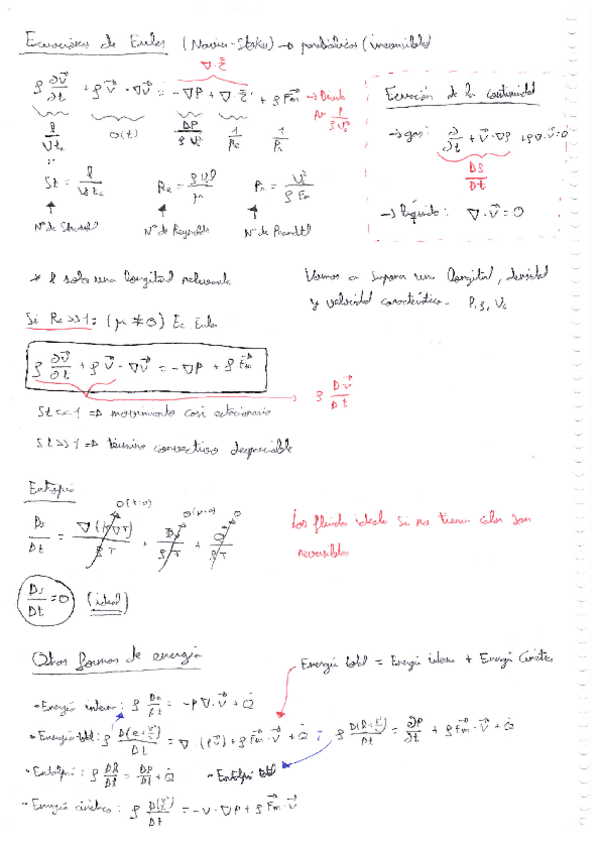 Ecuaciones de Euler (Navier-Stokes) → parabólicas (irreversible)
∇·τ̿'
ρ ∂v⃗/∂t + ρ v⃗ · ∇v⃗ = -∇P + ∇·τ̿' + ρ F⃗m → Divido por
l/(Vtc) O(1) ΔP/(ρ Vc²) 1/Re 1/Fr
St = l/(Vctc) Re = ρ Vc l/μ
Nº de Strouhal Nº de Reynolds Nº de Prandtl
Ecuación de la continuidad
→ gas: ∂/∂t + v⃗·∇ρ + ρ∇·v⃗ = 0
Dρ/Dt
→ líquido: ∇·v⃗ = 0
* l sola una longitud relevante
Vamos a suponer una longitud, densidad
y velocidad característica. ρ, Vc
Si Re>>1: (μ ≠ 0) Ec. Euler
ρ ∂v⃗/∂t + ρ v⃗ · ∇v⃗ = -∇P + ρ F⃗m
ρ Dv⃗/Dt
St<<1 ⇒ movimiento casi estacionario
St>>1 ⇒ término convectivo despreciable
Entropía
Ds/Dt = ∇(k∇T)/ρT + /ρT + Q/ρT
Los fluidos ideales si no tienen calor son
reversibles
Ds/Dt = 0 (ideal)
Otras formas de energía
Energía total = Energía interna + Energía Cinética
- Energía interna: ρ De/Dt = -P ∇·v⃗ + Q̇
- Energía total: ρ D(e+v²/2)/Dt = ∇ (Pv⃗) + ρ F⃗m·v⃗ + Q̇ ; ρ D(h+v²/2)/Dt = ∂P/∂t + ρ F⃗m·v⃗ + Q̇
- Entalpía: ρ Dh/Dt = DP/Dt + Q̇ - Entalpía total
- Energía cinética: ρ D(v²/2)/Dt = -v·∇P + ρ F⃗m·v⃗